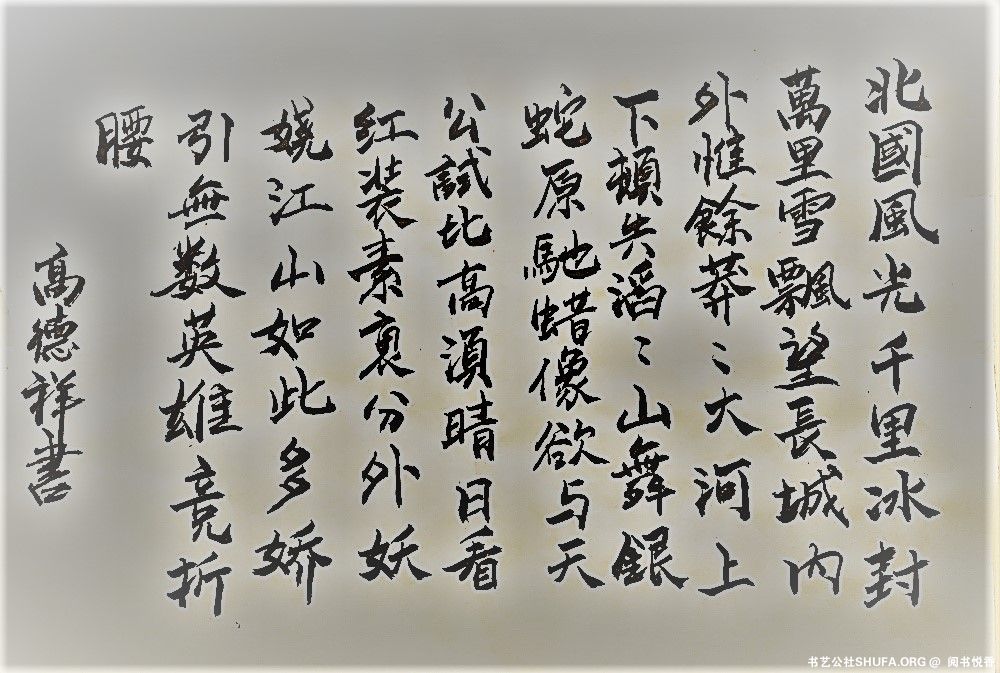 北國風光千里冰封
萬里雪飄望長城内
外惟餘莽〻大河上
下頓失滔〻山舞銀
蛇原馳蜡像欲与天
公試比高須晴日看
红装素裹分外妖
娆江山如此多娇
引無数英雄竞折
腰
高德祥書
书艺公社SHUFA.ORG @ 阅书悦香